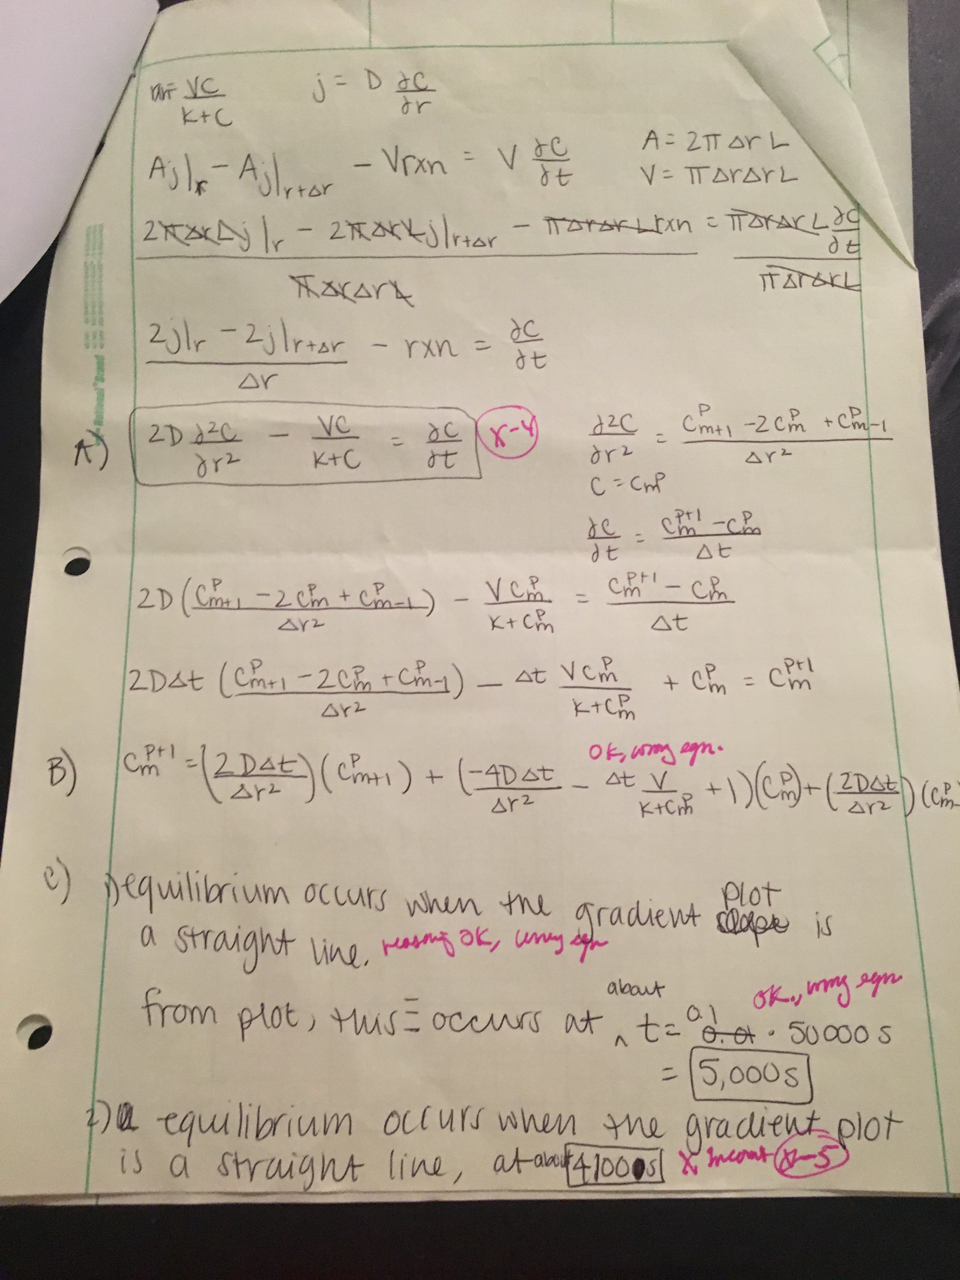 rxn = VC/(K+C)    j = D ∂C/∂r
Aj|r - Aj|r+Δr - Vrxn = V ∂C/∂t    A = 2πΔrL
V = πΔrΔrL
(2πΔrLj|r - 2πΔrLj|r+Δr - πΔrΔrLrxn)/(πΔrΔrL) = (πΔrΔrL ∂C/∂t)/(πΔrΔrL)
(2j|r - 2j|r+Δr)/Δr - rxn = ∂C/∂t
A) 2D ∂²C/∂r² - VC/(K+C) = ∂C/∂t    x-4    ∂²C/∂r² = (C^p_m+1 - 2C^p_m + C^p_m-1)/Δr²
C = C^p_m
∂C/∂t = (C^p+1_m - C^p_m)/Δt
2D((C^p_m+1 - 2C^p_m + C^p_m-1)/Δr²) - VC^p_m/(K+C^p_m) = (C^p+1_m - C^p_m)/Δt
2DΔt((C^p_m+1 - 2C^p_m + C^p_m-1)/Δr²) - Δt VC^p_m/(K+C^p_m) + C^p_m = C^p+1_m
OK, wrong eqn.
B) C^p+1_m = (2DΔt/Δr²)(C^p_m+1) + (-4DΔt/Δr² - Δt V/(K+C^p_m) + 1)(C^p_m) + (2DΔt/Δr²)(C^p_m
C) 1) equilibrium occurs when the gradient plot is
a straight line. reasoning OK, wrong eqn
from plot, this occurs at about t = 0.1 · 50000s    OK, wrong eqn
= 5,000s
2) equilibrium occurs when the gradient plot
is a straight line, at about 41000s    X, Incorrect x-5